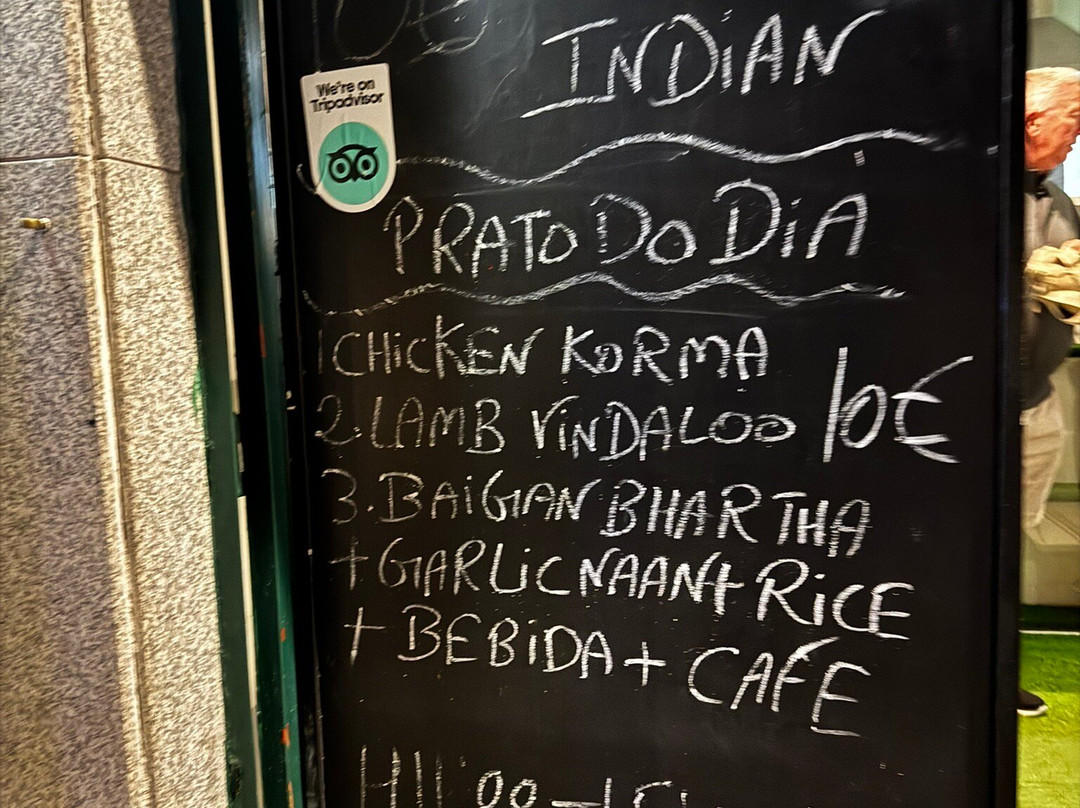 INDiAN
We're on
Tripadvisor
PRATO DO DiA
1 CHiCKEN KORMA
2. LAMB ViNDALOO 10€
3. BAiGAN BHARTHA
+ GARLiC NAAN + RiCE
+ BEBiDA + CAFE